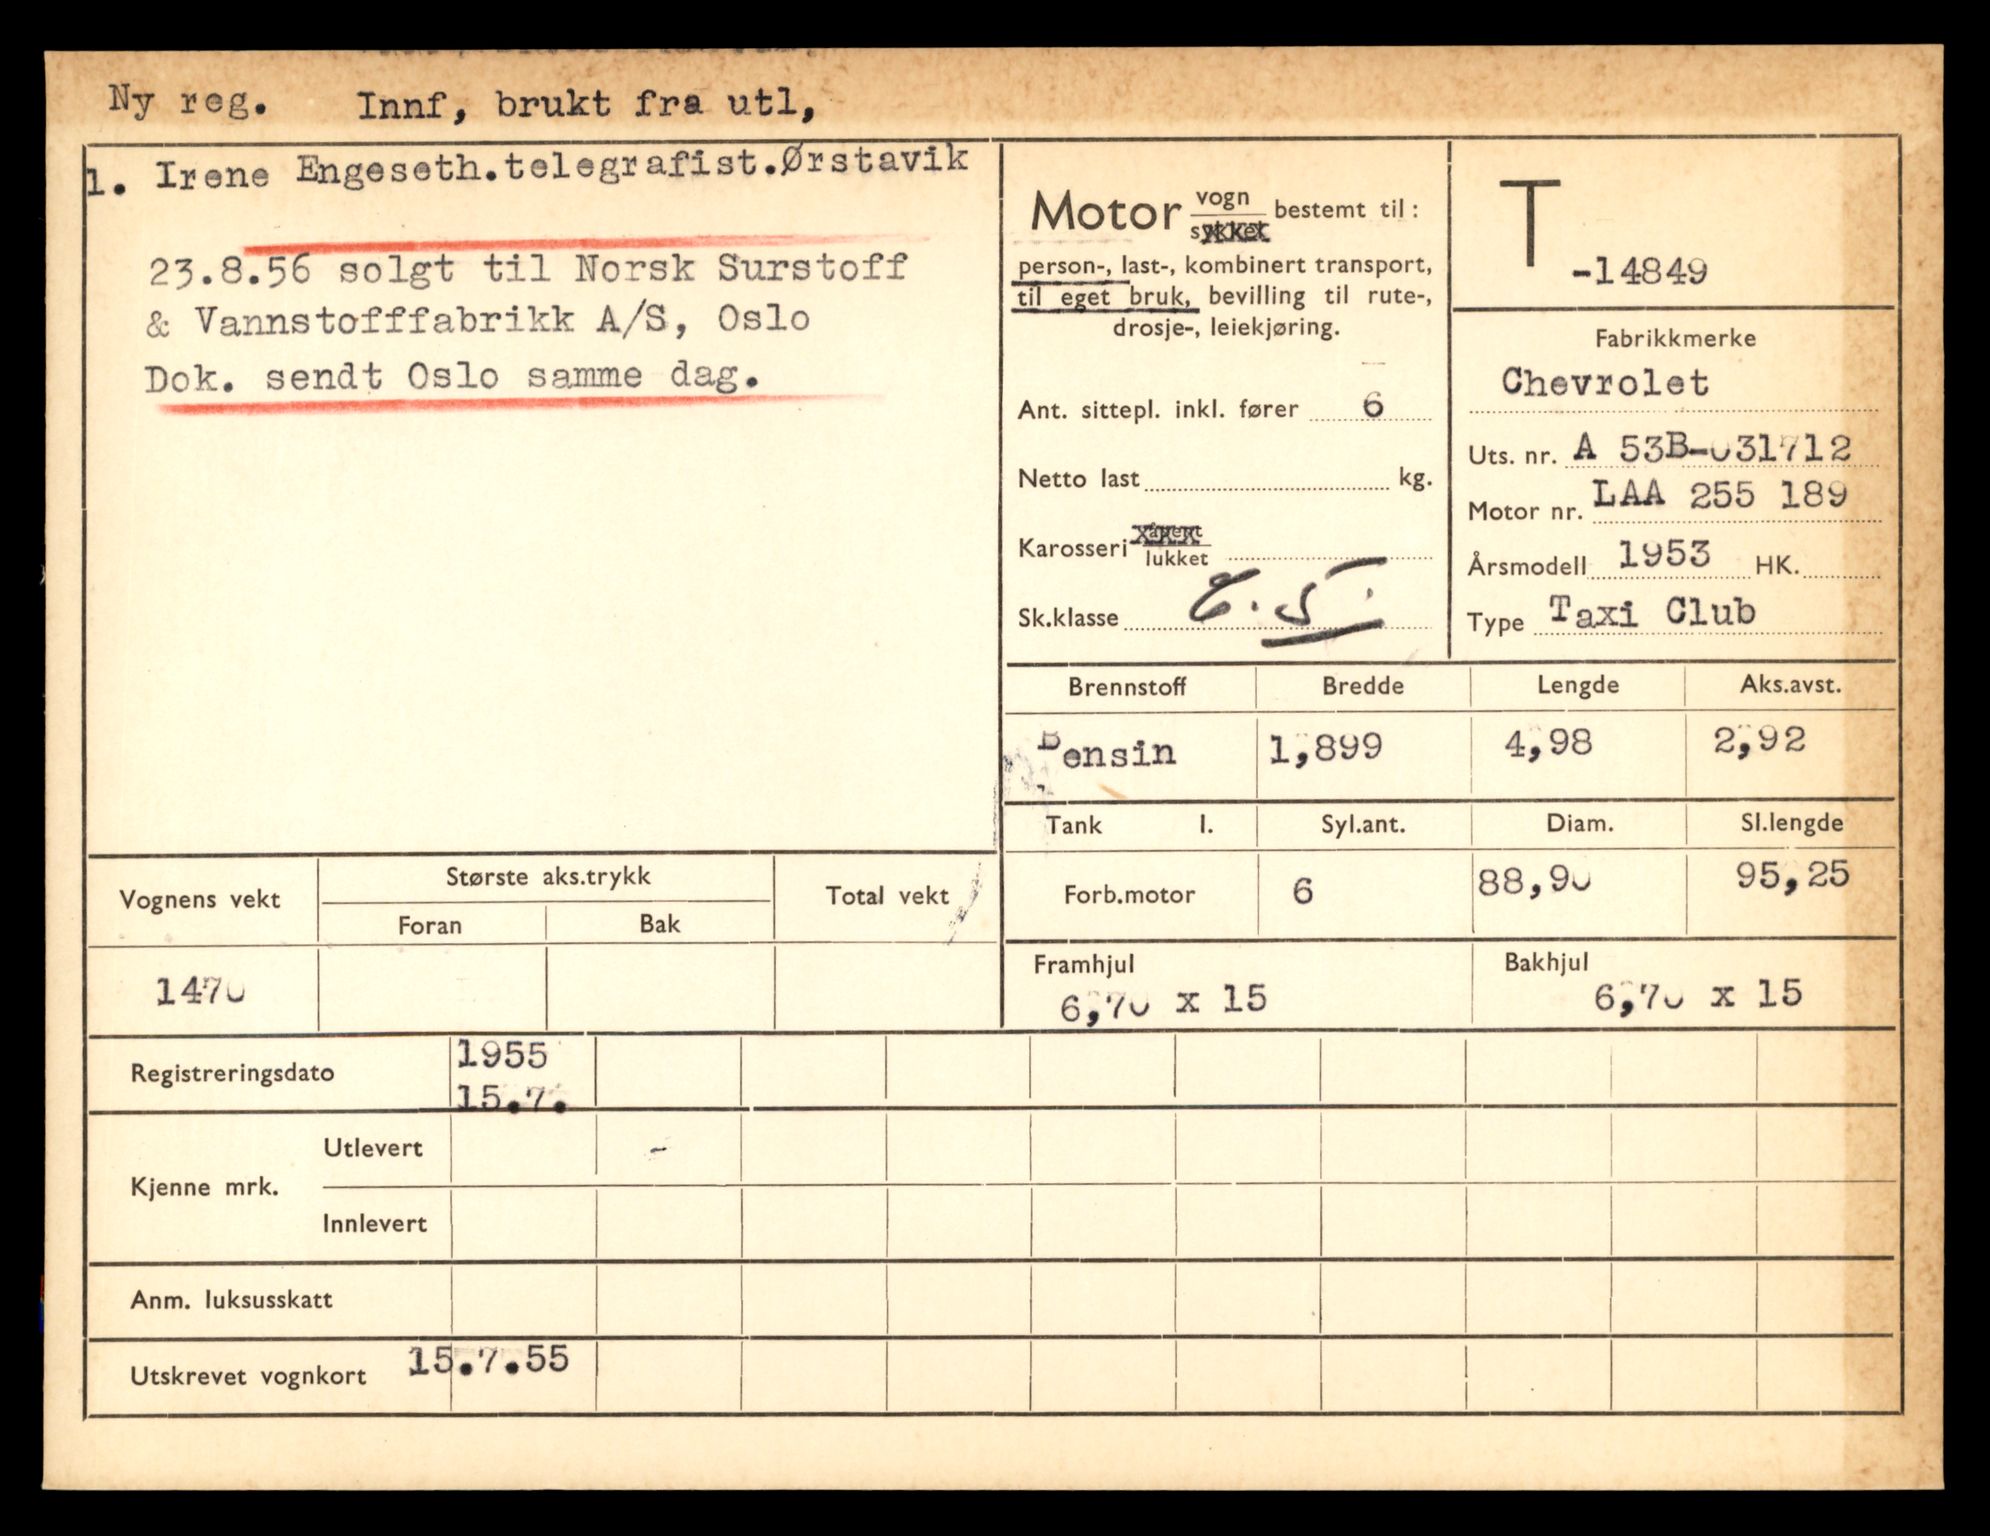 Ny reg. Innf, brukt fra utl,
1. Irene Engeseth.telegrafist.Ørstavik
23.8.56 solgt til Norsk Surstoff
& Vannstofffabrikk A/S, Oslo
Dok. sendt Oslo samme dag.
Motor vogn bestemt til:
sykkel
person-, last-, kombinert transport,
til eget bruk, bevilling til rute-,
drosje-, leiekjøring.
Ant. sittepl. inkl. fører 6
Netto last kg.
Karosseri åpent
lukket
Sk.klasse
T
-14849
Fabrikkmerke
Chevrolet
Uts. nr. A 53B-031712
Motor nr. LAA 255 189
Årsmodell 1953 HK.
Type Taxi Club
Brennstoff Bredde Lengde Aks.avst.
Bensin 1,899 4,98 2,92
Tank l. Syl.ant. Diam. Sl.lengde
Forb.motor 6 88,90 95,25
Framhjul Bakhjul
6,70 x 15 6,70 x 15
Vognens vekt Største aks.trykk Total vekt
Foran Bak
1470
Registreringsdato 1955
15.7.
Kjenne mrk. Utlevert -
Innlevert
Anm. luksusskatt
Utskrevet vognkort 15.7.55